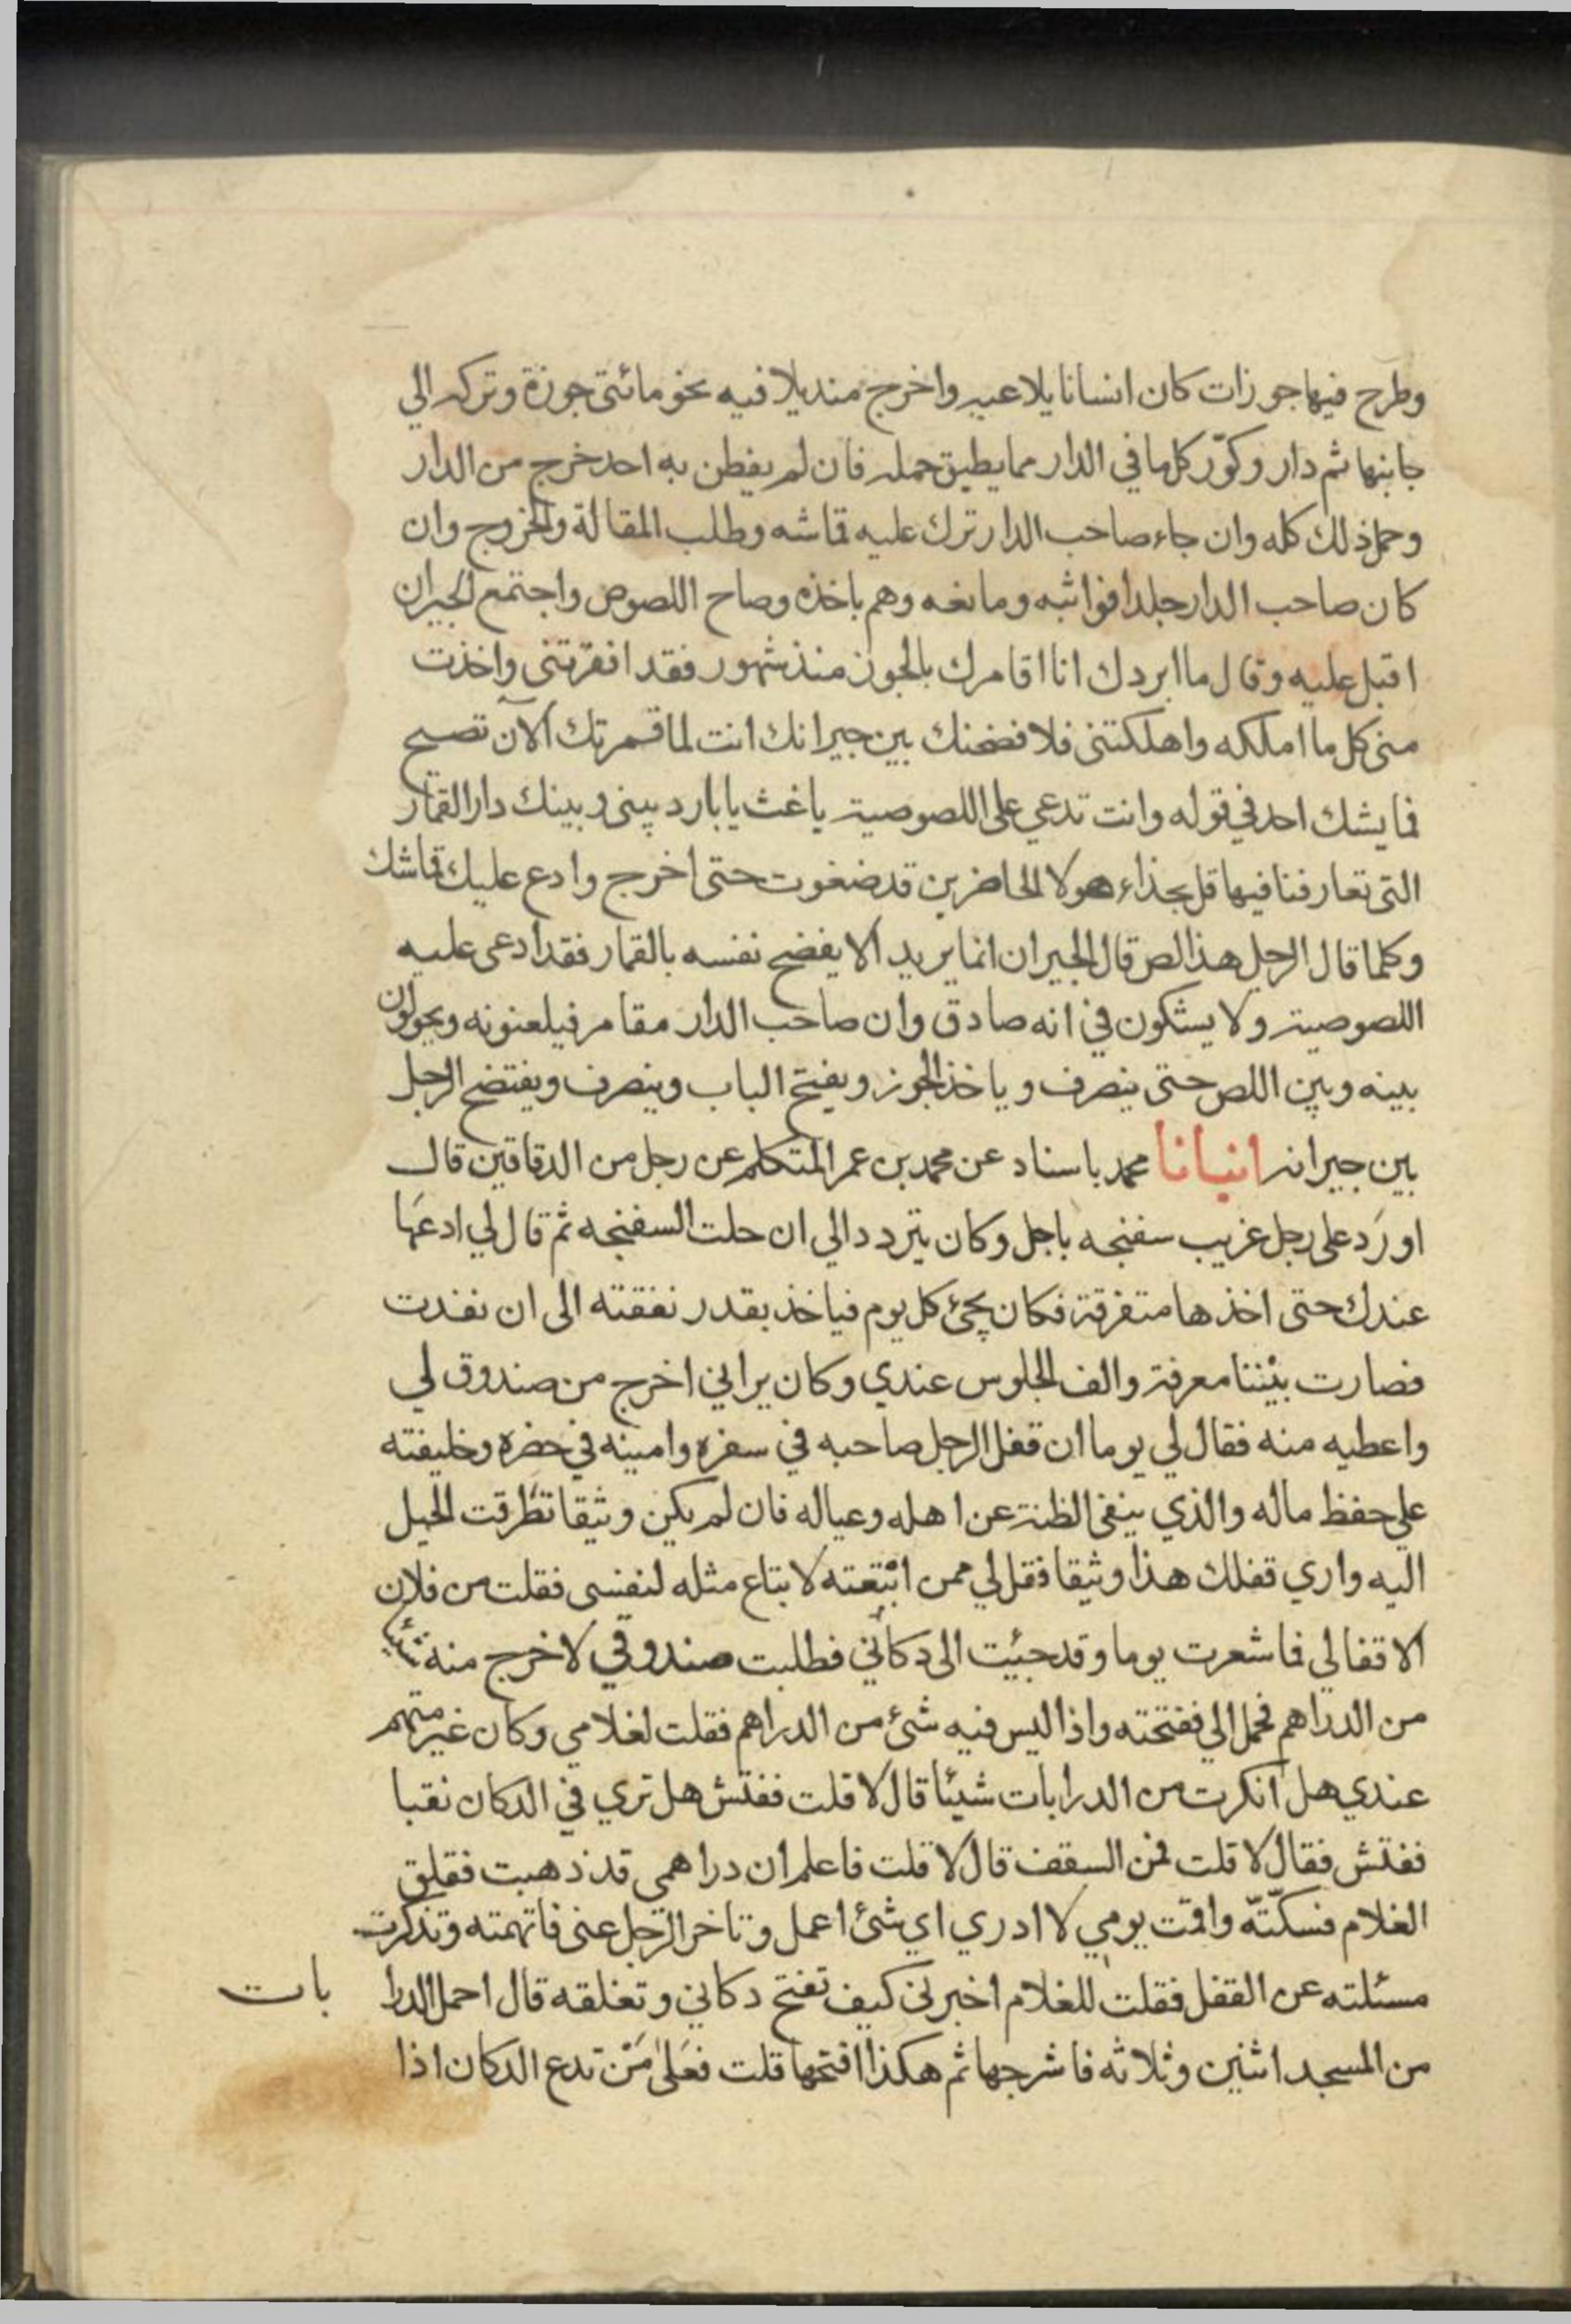 وطرح فيها جوزات كان انسانا يلاعبه واخرج منديلا فيه نحو مائتي جوزة وتركه الي
جانبها ثم دار وكوّر كل ما في الدار مما يطيق حمله فان لم يفطن به احد خرج من الدار
وحمل ذلك كله وان جاء صاحب الدار ترك عليه قماشه وطلب المقالة والخروج وان
كان صاحب الدار جلدا فواثبه ومانعه وهم باخذه وصاح اللصوص واجتمع الجيران
اقبل عليه وقال ما ابردك انا اقامرك بالجوز منذ شهور فقد افقرتني واخذت
مني كل ما املكه واهلكتني فلا فضحنك بين جيرانك انت لما قمرتك الآن تصيح
فما يشك احد في قوله وانت تدعي على اللصوصية يا غث يا بارد بيني وبينك دار القمار
التي تعارفنا فيها قل بحذاء هولا الحاضرين قد ضغوت حتى اخرج وادع عليك قماشك
وكلما قال الرجل هذا لص قال الجيران انما يريد الا يفضح نفسه بالقمار فقد ادعى عليه
اللصوصية ولا يشكون في انه صادق وان صاحب الدار مقامر فيلعنونه ويحولون
بينه وبين اللص حتى ينصرف وياخذ الجوز ويفتح الباب وينصرف ويفتضح الرجل
بين جيرانه انبانا محمد باسناد عن محمد بن عمر المتكلم عن رجل من الدقاقين قال
اورد على رجل غريب سفنجه باجل وكان يتردد الي ان حلت السفنجه ثم قال لي ادعها
عندك حتى اخذها متفرقة فكان يجئ كل يوم فياخذ بقدر نفقته الى ان نفدت
فصارت بيننا معرفة والف الجلوس عندي وكان يراني اخرج من صندوق لي
واعطيه منه فقال لي يوما ان قفل الرجل صاحبه في سفره وامينه في حضره وخليفته
علي حفظ ماله والذي ينفي الظنة عن اهله وعياله فان لم يكن وثيقا تطرقت الحيل
اليه واري قفلك هذا وثيقا فقل لي ممن ابتعته لابتاع مثله لنفسي فقلت من فلان
الاقفالي فما شعرت يوما وقد جيئت الى دكاني فطلبت صندوقي لاخرج منه شيئا
من الدراهم فحمل الي ففتحته واذا ليس فيه شئ من الدراهم فقلت لغلامي وكان غير متهم
عندي هل انكرت من الدرابات شيئا قال لا قلت ففتش هل تري في الدكان نقبا
ففتش فقال لا قلت فمن السقف قال لا قلت فاعلم ان دراهمي قد ذهبت فقلق
الغلام فسكتّه واقمت يومي لا ادري اي شئ اعمل وتاخر الرجل عني فاتهمته وتذكرت
مسئلته عن القفل فقلت للغلام اخبرني كيف تفتح دكاني وتغلقه قال احمل الدرا بات
من المسجد اثنين وثلاثه فاشرجها ثم هكذا افتحها قلت فعلى من تدع الدكان اذا